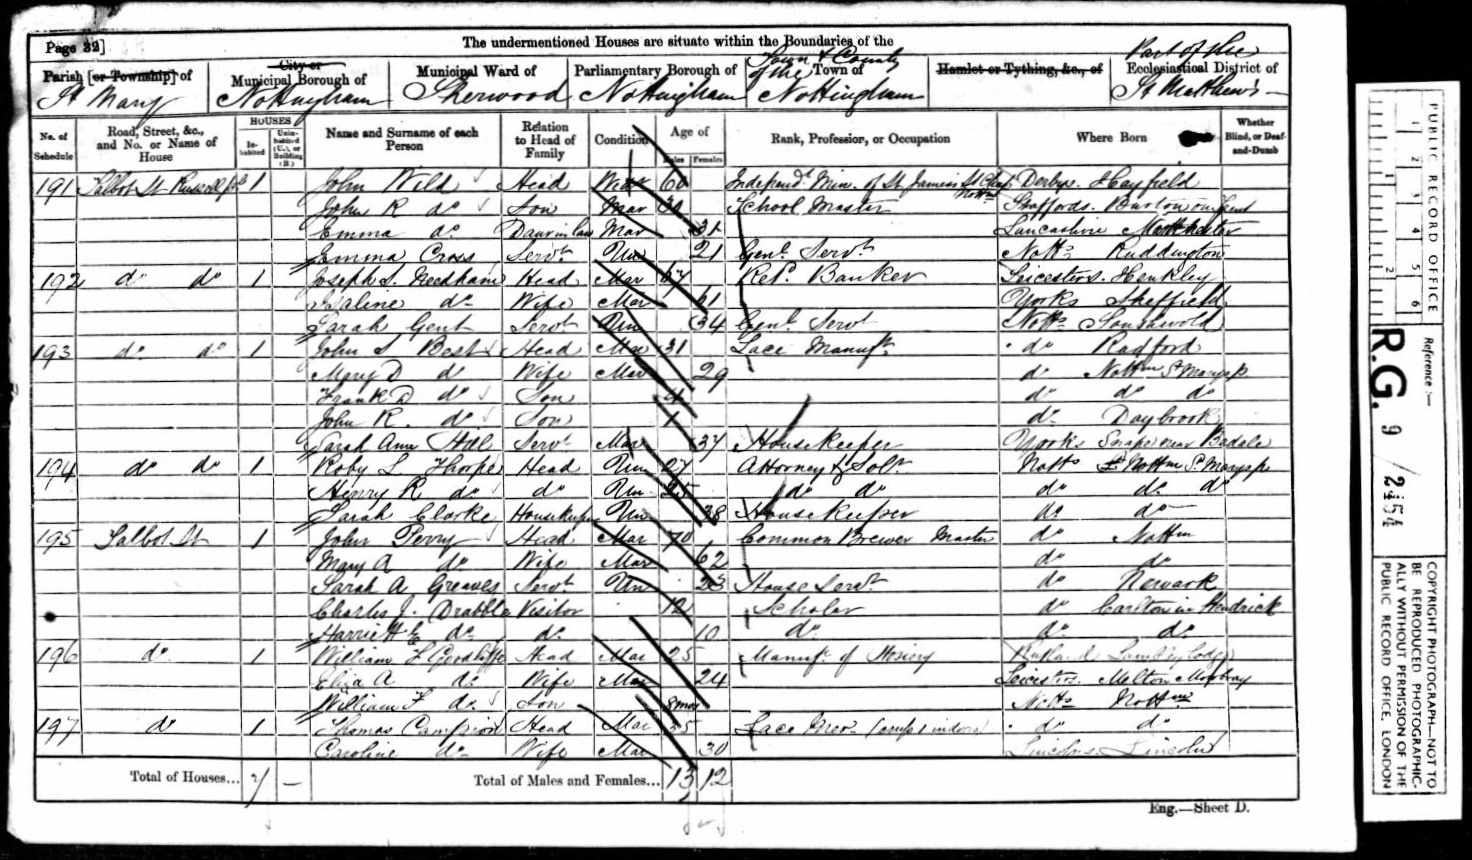 Page 32]
The undermentioned Houses are situate within the Boundaries of the
Parish [or Township] of St Mary
City or Municipal Borough of Nottingham
Municipal Ward of Sherwood
Parliamentary Borough of Nottingham
Town & County of the Town of Nottingham
Hamlet or Tything, &c., of
Part of the Ecclesiastical District of St Matthews
No. of Schedule
Road, Street, &c., and No. or Name of House
HOUSES
Inhabited
Uninhabited (U.), or Building (B.)
Name and Surname of each Person
Relation to Head of Family
Condition
Age of
Males Females
Rank, Profession, or Occupation
Where Born
Whether Blind, or Deaf-and-Dumb
191 Talbot St Russell 1 John Wild Head 60 Independt Min. of St James St Derbys. Hayfield
John R do Son Mar 30 School Master Staffords. Burton on Trent
Emma do Daur in law Mar 31 Lancashire Manchester
Emma Cross Servt Un 21 Genl Servt Notts Ruddington
192 do do 1 Joseph S. Needham Head Mar 67 Retd Banker Leicesters. Henkley
do Wife Mar 61 Yorks Sheffield
Sarah Gent Servt Un 34 Genl Servt Notts
193 do do 1 John S Best Head Mar 31 Lace Manufr do Radford
Mary D do Wife Mar 29 do Nottm St Marys p
Frank D do Son 4 do do do
John R. do Son 1 do Daybrook
Sarah Ann Servt Mar 37 Housekeeper Yorks Snape near Badale
194 do do 1 Roby L Thorpe Head Un 27 Attorney & Solr Notts Nottm St Marys p
Henry R do do Un 25 do do do do do
Sarah Clarke Housekeeper Un 38 Housekeeper do do
195 Talbot St 1 John Perry Head Mar 70 Common Brewer Master do Nottm
Mary A do Wife Mar 62 do do
Sarah A Greaves Servt Un 23 House Servt do Newark
Charles J. Drabble Visitor 12 Scholar do Carlton in
Harriett E do do 10 do do do
196 do 1 William F Goodliffe Head Mar 25 Manufr of Hosiery Rutlands
Eliza A do Wife Mar 24 Leicesters. Melton Mowbray
William F do Son 8 mos Notts Nottm
197 do 1 Thomas Campion Head Mar 35 Lace do do
Caroline do Wife Mar 30 Lincolns. Lincoln
Total of Houses... 7 —
Total of Males and Females... 13 12
Eng.—Sheet D.
PUBLIC RECORD OFFICE
1 2 3 4 5 6
1 2
Reference :—
R.G. 9 / 2454
COPYRIGHT PHOTOGRAPH—NOT TO BE REPRODUCED PHOTOGRAPHICALLY WITHOUT PERMISSION OF THE PUBLIC RECORD OFFICE, LONDON